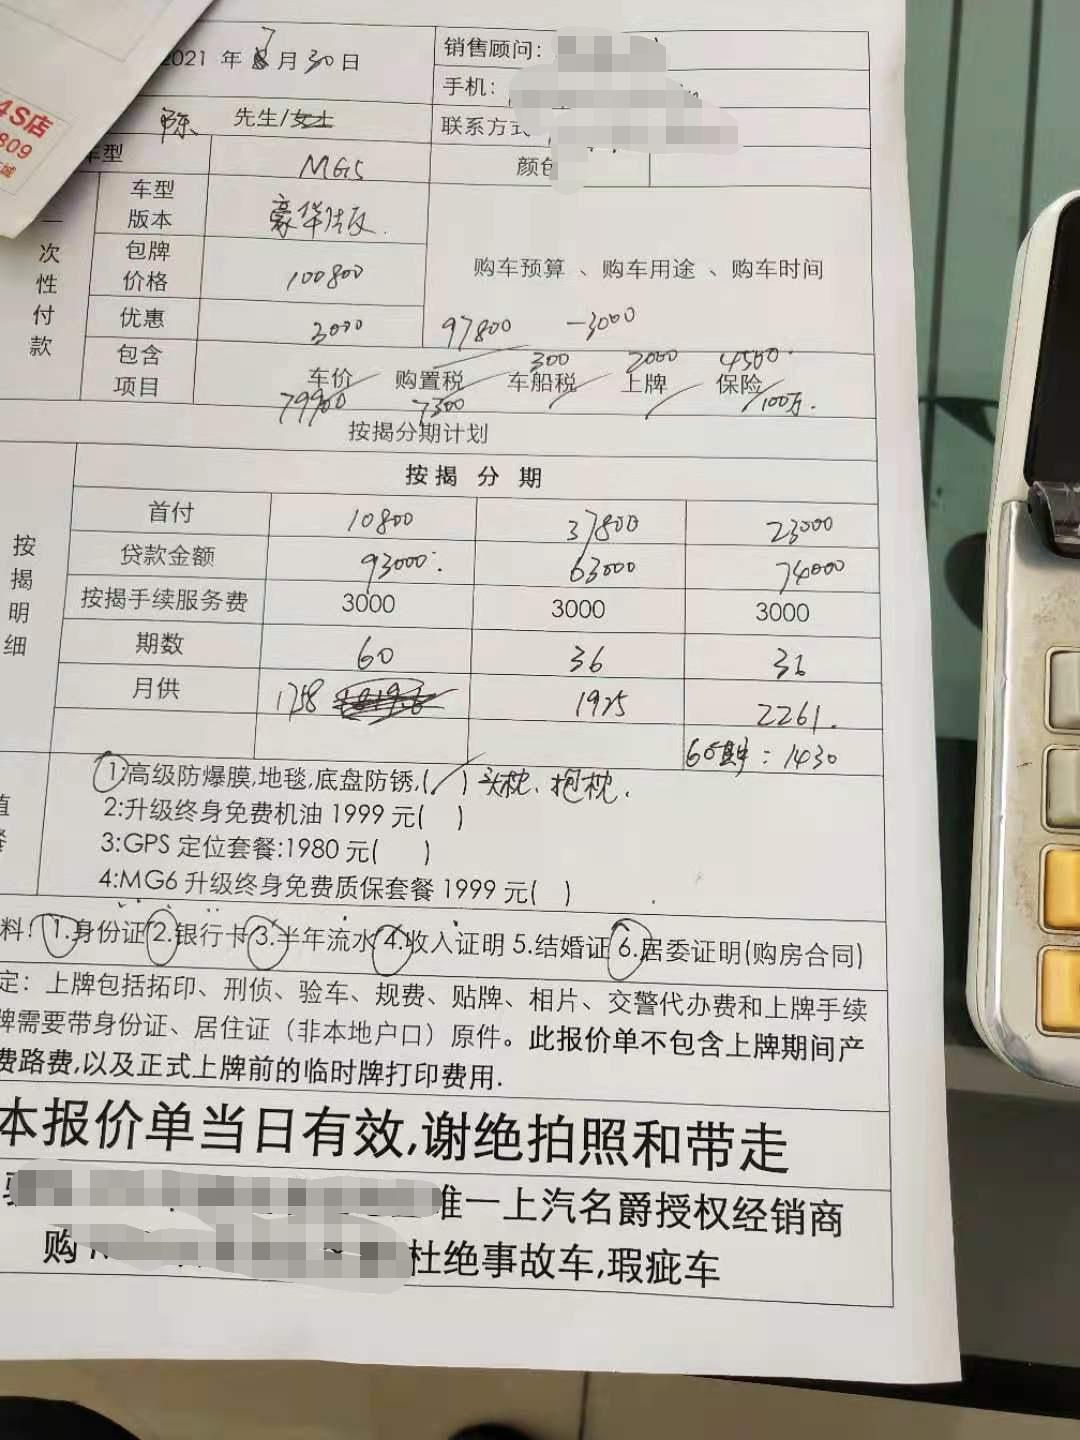 4S店
809
城
2021 年 7 月 30 日
销售顾问:
手机:
联系方式
陈 先生/女士
车型 MG5 颜色
一次性付款
车型版本 豪华版.
包牌价格 100800
购车预算 、购车用途 、购车时间
优惠 3000 97800 -3000
300 2000 4500.
包含项目 车价 购置税 车船税 上牌 保险
79900 7300 100万.
按揭分期计划
按揭明细
按 揭 分 期
首付 10800 37800 23000
贷款金额 93000. 63000 74000
按揭手续服务费 3000 3000 3000
期数 60 36 36
月供 1758 1925 2261.
60期: 1430
1:高级防爆膜,地毯,底盘防锈,( ) 头枕、抱枕.
2:升级终身免费机油 1999 元( )
3:GPS 定位套餐:1980 元( )
4:MG6 升级终身免费质保套餐 1999 元( )
料: 1.身份证 2.银行卡 3.半年流水 4.收入证明 5.结婚证 6.居委证明(购房合同)
定: 上牌包括拓印、刑侦、验车、规费、贴牌、相片、交警代办费和上牌手续
牌需要带身份证、居住证（非本地户口）原件。此报价单不包含上牌期间产
费路费,以及正式上牌前的临时牌打印费用.
本报价单当日有效,谢绝拍照和带走
唯一上汽名爵授权经销商
购 杜绝事故车,瑕疵车